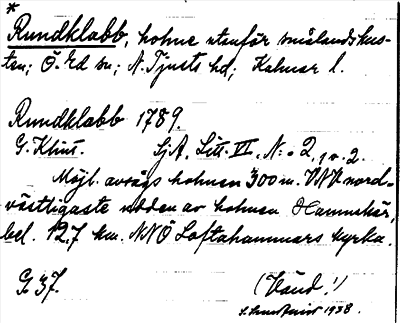 *
Rundklabb, holme utanför smålandskus-
ten; Ö. Ed sn; N. Tjusts hd; Kalmar l.
Rundklabb 1789.
G. Klint. SjA, Litt. VI, N:o 2, 1 o. 2.
Möjl. avsågs holmen 300 m. VNV nord-
västligaste udden av holmen Hamnskär,
bel. 12,7 km. NNÖ Loftahammars kyrka.
G 37. (Vänd!)
1938.